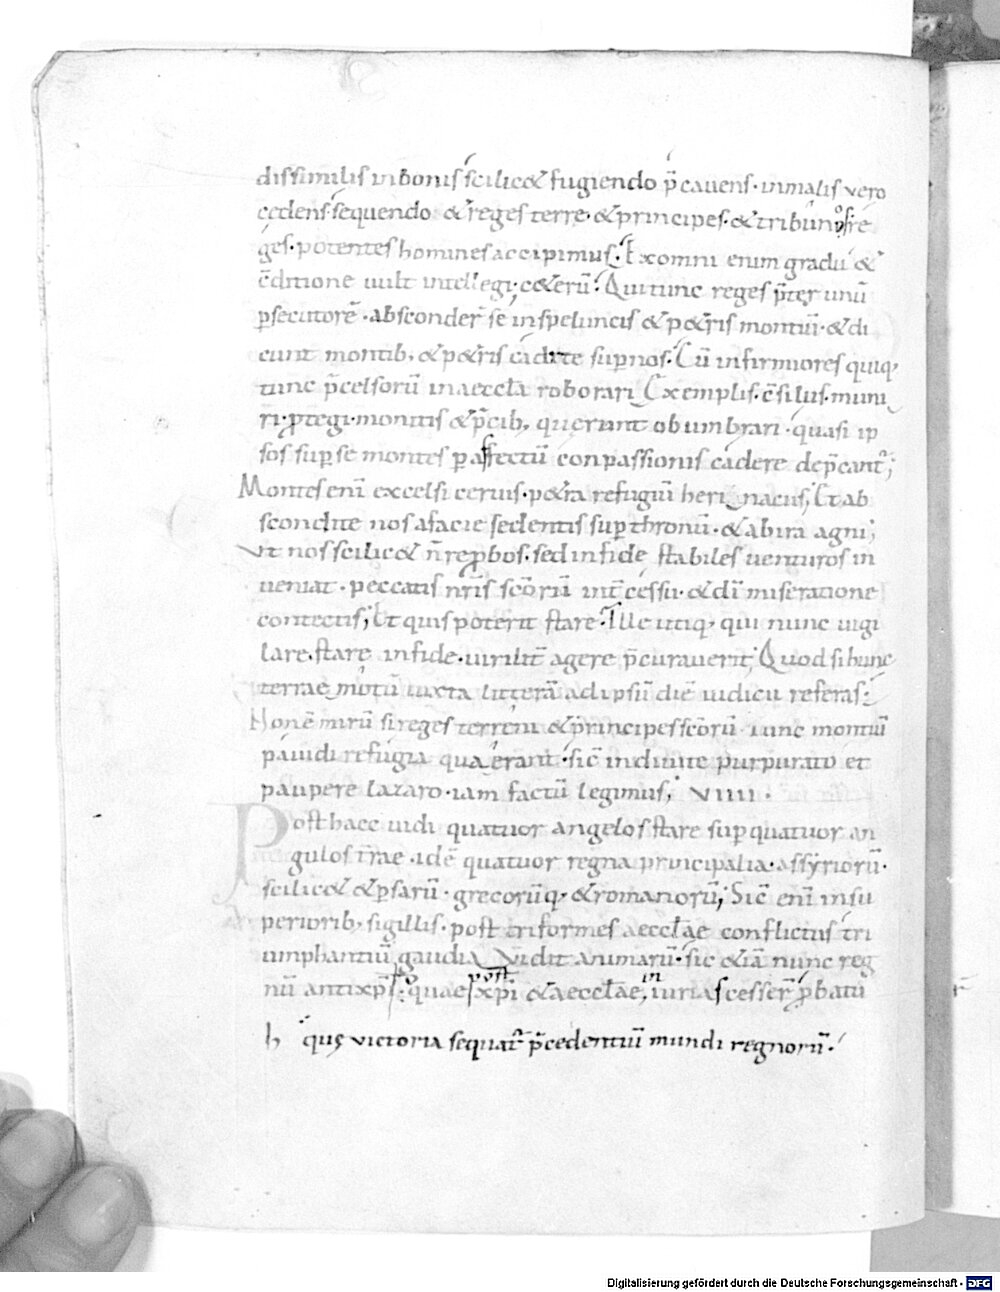 dissimilis inbonis scilic& fugiendo p̄cavens · inmalis vero
cedens sequendo &reges terre · &principes · &tribunos re
ges · potentes homines accipimus · Exomni enim gradu &
c̄ditione vult intellegi · c&erū · Qui tunc reges p̄ter unū
p̱secutorē · absconder̄ se inspeluncis &p&ris montiū · &di
cunt montib; &p&ris cadite sup̱nos · Cū infirmiores quiq;
tunc p̄celsorū inaeccl̄a roborari Exemplis · c̄siliis · muni
ri · p̱tegi · monitis &p̄cib; querunt obumbrari · quasi ip
sos sup̱se montes p̱ affectū conpassionis cadere dep̄cant̄;
Montes enī excelsi cervis · p&ra refugiū herinacus; Et ab
scondite nos afacie sedentis sup̱ thronū · &abira agni;
Vt nos scilic& n̄ rep̱bos · sed infide stabiles venturos in
veniat · peccatis nr̄is scōrū int̄cessu · &dī miseratione
contectis; Et quis poterit stare · Ille utiq; qui nunc vigi
lare · stare infide · virilit̄ agere p̄curaverit; Quod si hunc
terrae motū iuxta litterā adipsū diē iudicii referas ·
Nonē mirū si reges terreni &principes scōrū tunc montiū
pavidi refugia quaerant · sic̄ indivite purpurato et
paupere lazaro · iam factū legimus; VIIII ·
Post haec vidi quatuor angelos stare sup̱ quatuor an
gulos tr̄ae · idē quatuor regna principalia · assyriorū ·
scilic& &p̱sarū · grecorūq; &romanorū; Sic̄ enī insu
perioríb; sigillis · post triformes aeccl̄ae conflictus tri
umphantiū gaudia vidit animarū · sic &iā nunc reg
post in
nū antixp̄i · quae xp̄i &aeccl̄ae iuria scesser̄ p̱batū
h quę victoria sequat̄ p̄cedentiū mundi regnorū ·
Digitalisierung gefördert durch die Deutsche Forschungsgemeinschaft - DFG